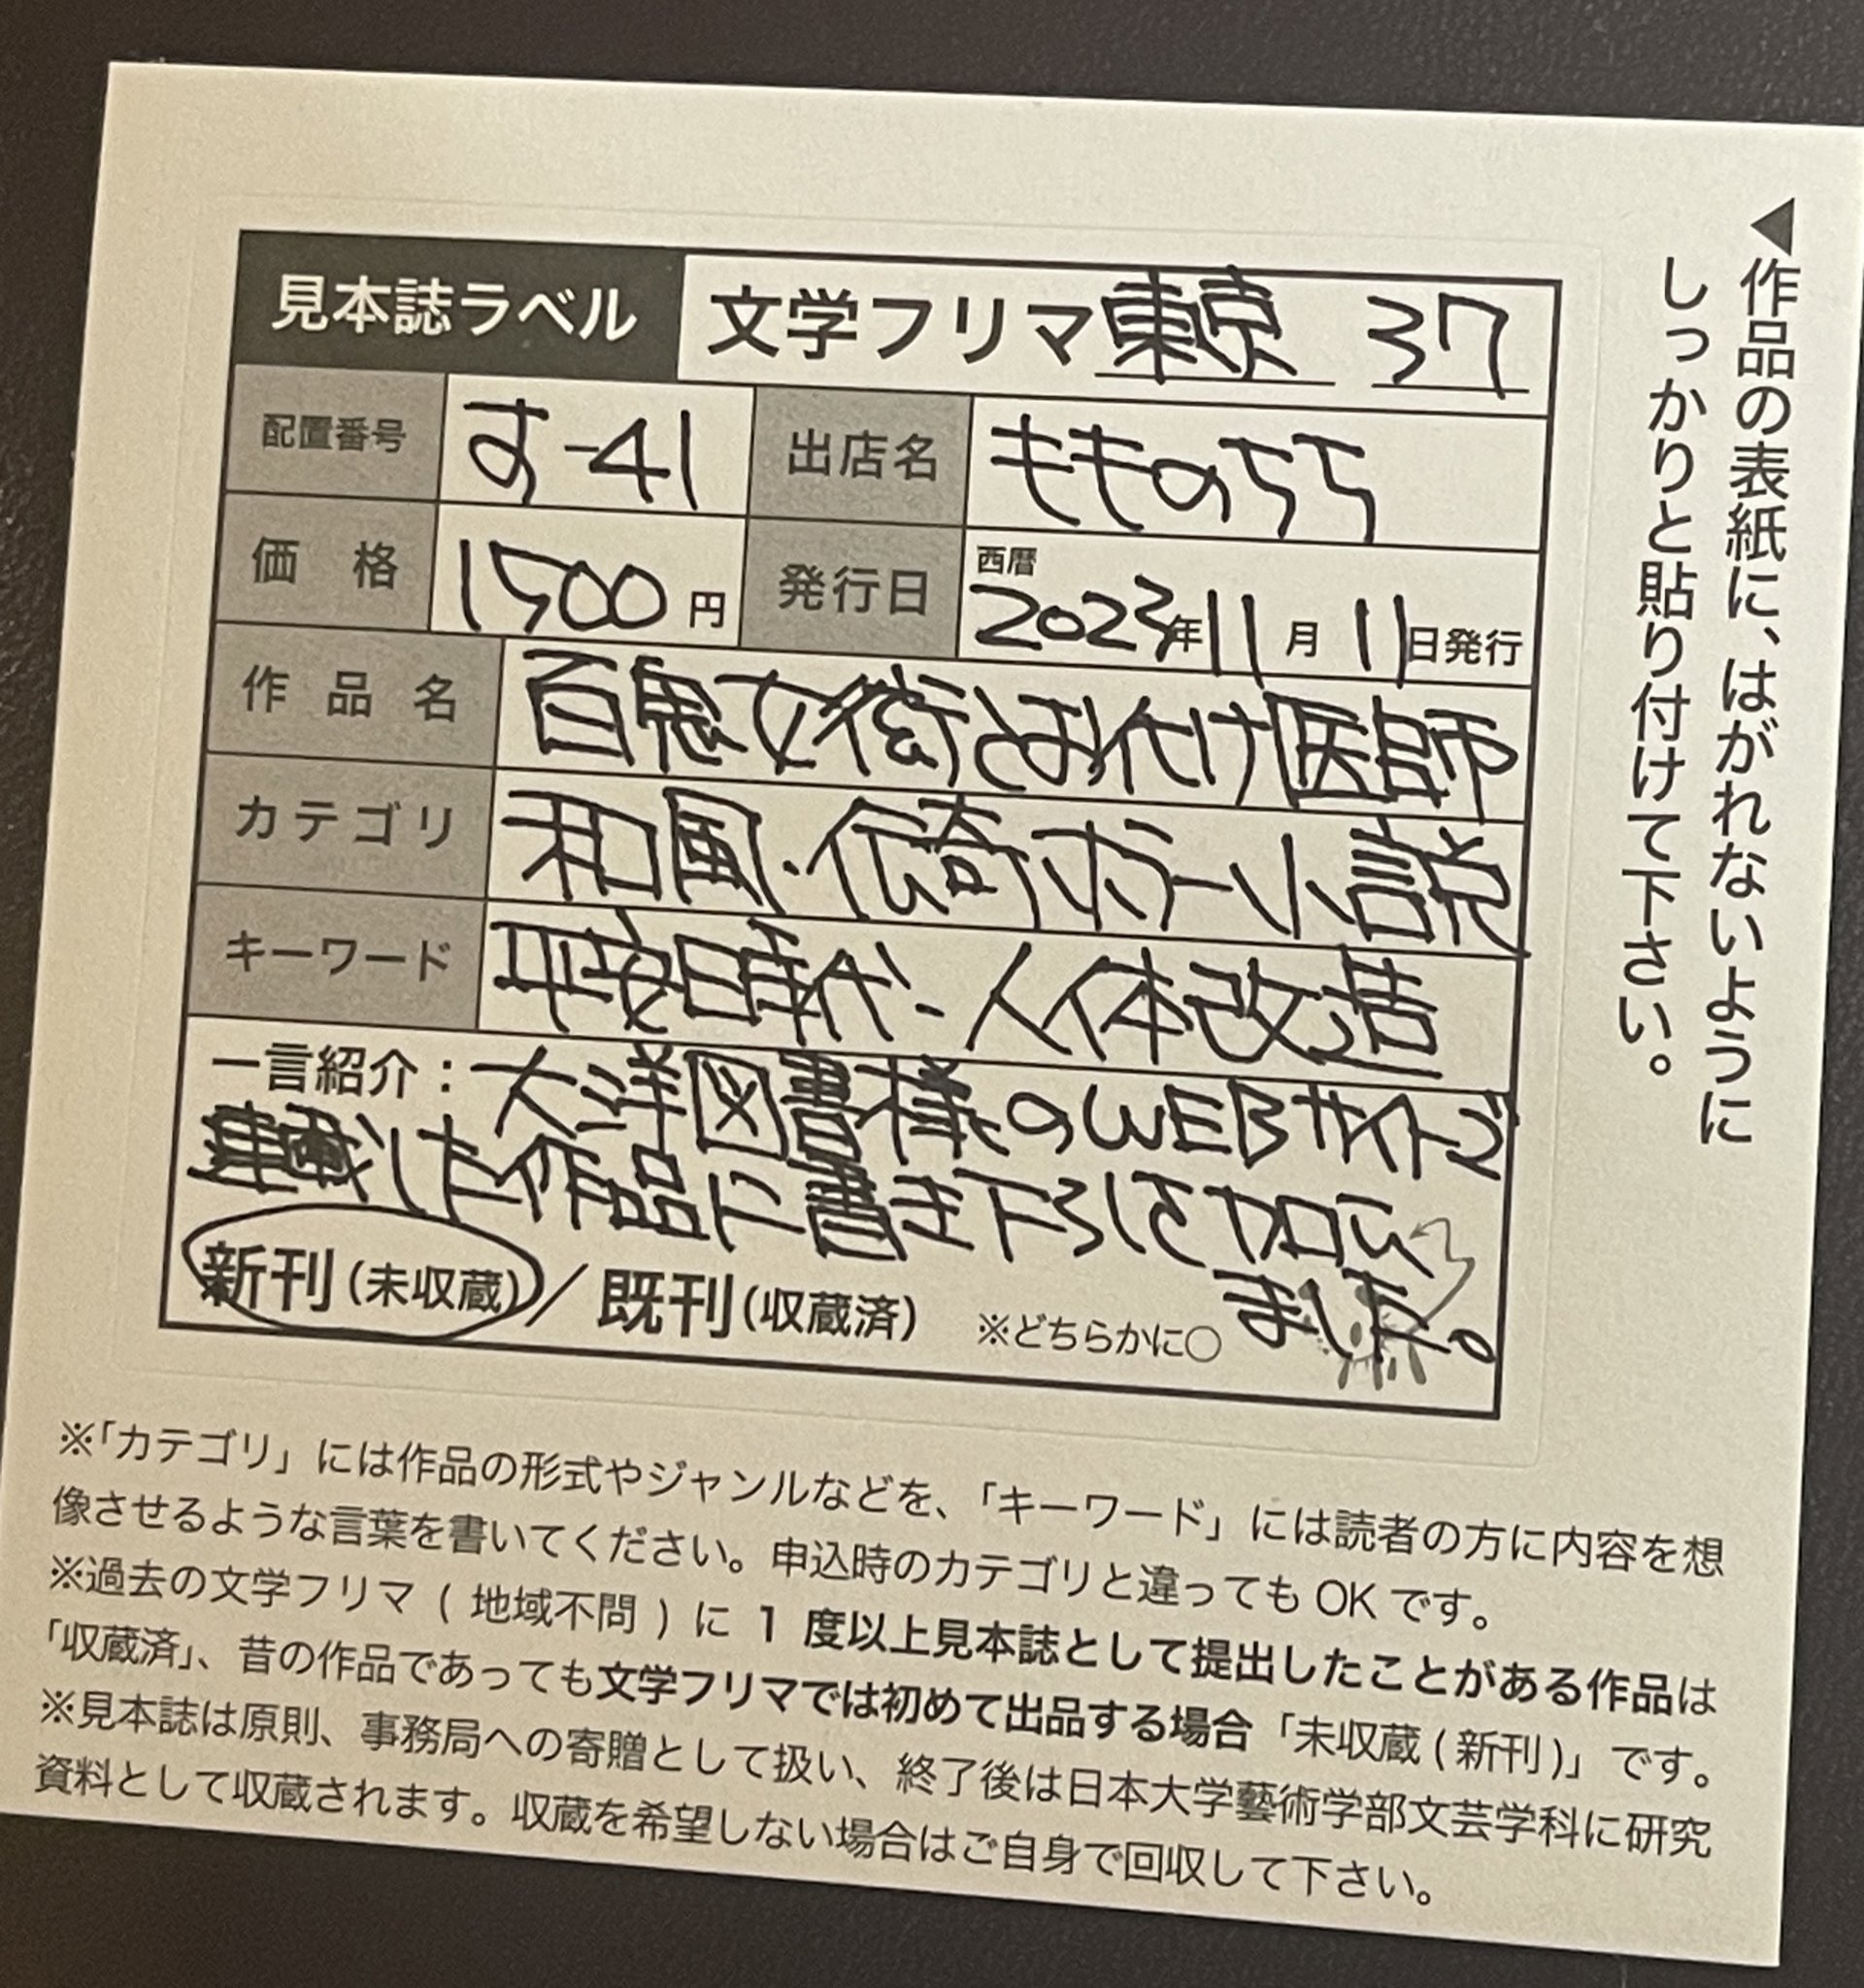 ▲作品の表紙に、はがれないように
しっかりと貼り付けて下さい。
見本誌ラベル 文学フリマ 東京 37
配置番号 す-41 出店名 もものちち
価格 1500円 発行日 西暦 2023年11月11日発行
作品名 百鬼 医師
カテゴリ 和風・伝奇ホラー小説
キーワード ・人体改造
一言紹介：大洋図書様のWEB
書き下ろし
ました。
新刊(未収蔵)／既刊(収蔵済) ※どちらかに○
※「カテゴリ」には作品の形式やジャンルなどを、「キーワード」には読者の方に内容を想
像させるような言葉を書いてください。申込時のカテゴリと違ってもOKです。
※過去の文学フリマ(地域不問)に1度以上見本誌として提出したことがある作品は
「収蔵済」、昔の作品であっても文学フリマでは初めて出品する場合「未収蔵(新刊)」です。
※見本誌は原則、事務局への寄贈として扱い、終了後は日本大学藝術学部文芸学科に研究
資料として収蔵されます。収蔵を希望しない場合はご自身で回収して下さい。